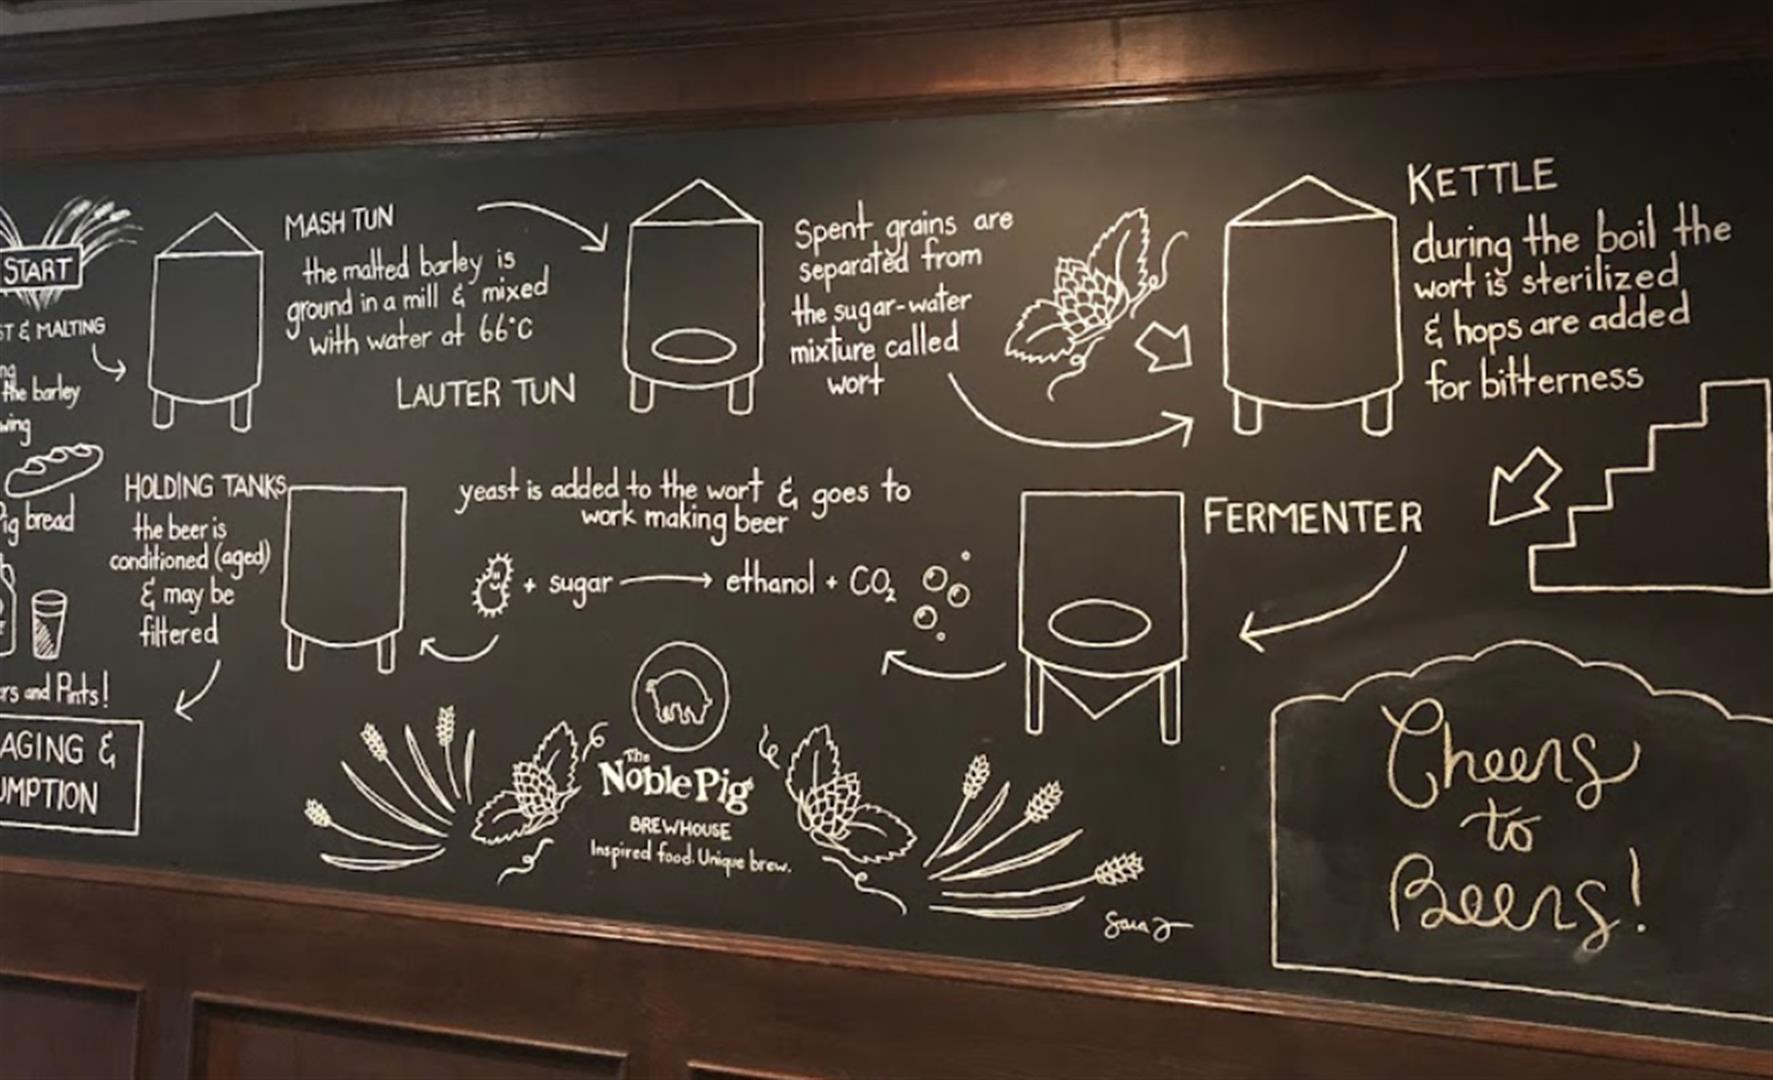 START
ST & MALTING
ng
the barley
wing
MASH TUN
the malted barley is
ground in a mill & mixed
with water at 66°C
LAUTER TUN
Spent grains are
separated from
the sugar-water
mixture called
wort
KETTLE
during the boil the
wort is sterilized
& hops are added
for bitterness
FERMENTER
yeast is added to the wort & goes to
work making beer
+ sugar → ethanol + CO₂
HOLDING TANKS
the beer is
conditioned (aged)
& may be
filtered
Pig bread
rs and Pints!
AGING &
UMPTION
The
Noble Pig
BREWHOUSE
Inspired food. Unique brew.
Cheers
to
Beers!